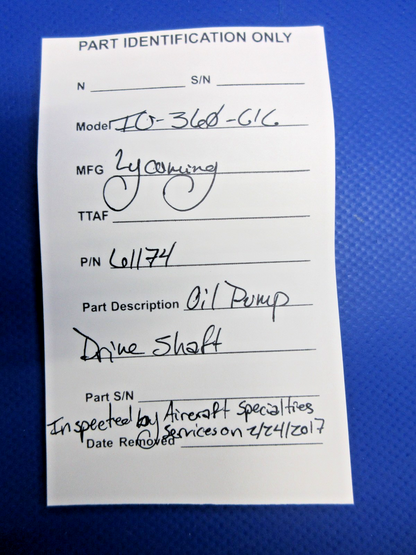 PART IDENTIFICATION ONLY
N S/N
Model IO-360-C1C
MFG Lycoming
TTAF
P/N 61174
Part Description Oil Pump
Drive Shaft
Part S/N
Inspected by Aircraft Specialties
Date Removed Services on 2/24/2017